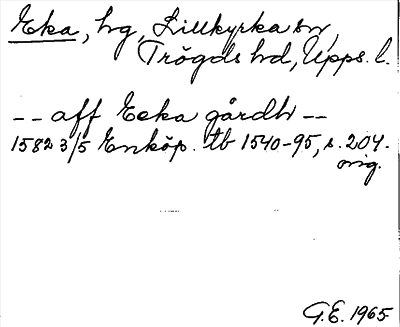 Eka, hg, Lillkyrka sn,
Trögds hd, Upps. l.
-- aff Ecka gårdh --
1582 3/5 Enköp. tb 1540-95, s. 204.
orig.
G.E. 1965